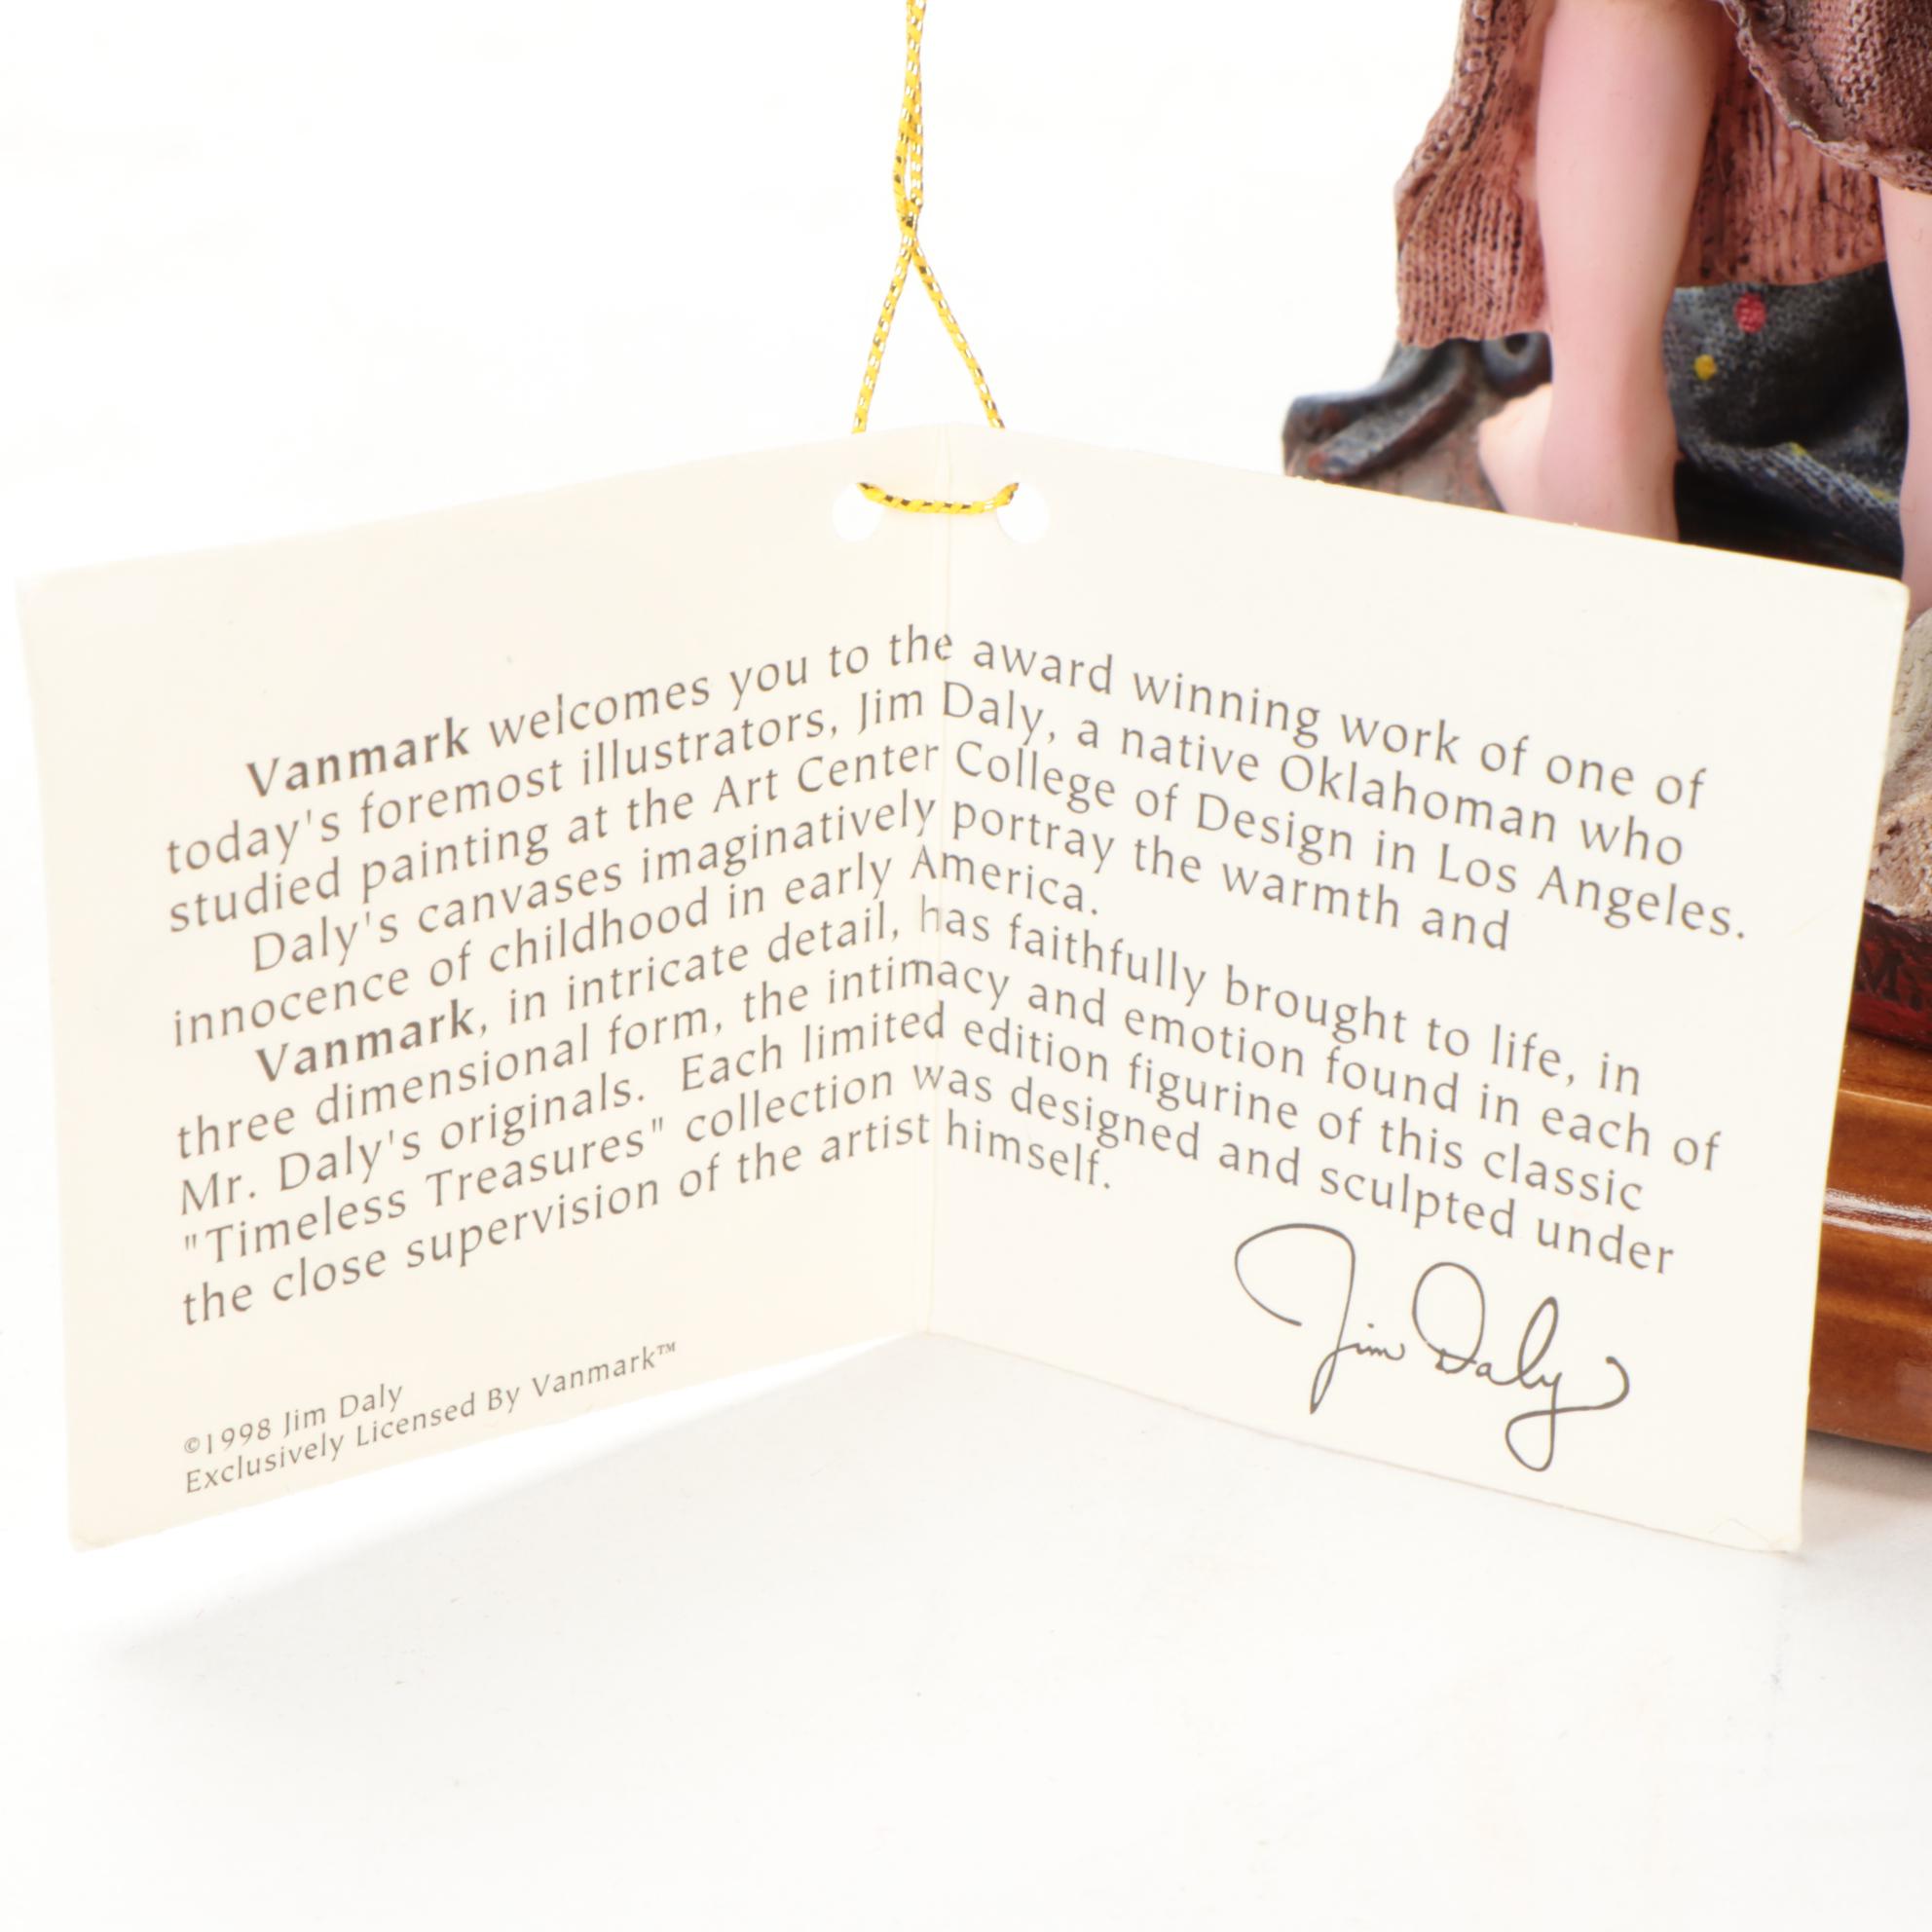 Vanmark welcomes you to the award winning work of one of
today's foremost illustrators, Jim Daly, a native Oklahoman who
studied painting at the Art Center College of Design in Los Angeles.
Daly's canvases imaginatively portray the warmth and
innocence of childhood in early America.
Vanmark, in intricate detail, has faithfully brought to life, in
three dimensional form, the intimacy and emotion found in each of
Mr. Daly's originals. Each limited edition figurine of this classic
"Timeless Treasures" collection was designed and sculpted under
the close supervision of the artist himself.
Jim Daly
©1998 Jim Daly
Exclusively Licensed By Vanmark™